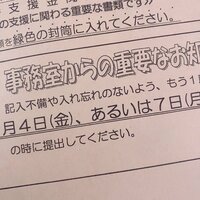 支援金関
の支援に関わる重要な書類ですが
額を緑色の封筒に入れてください。
事務室からの重要なお知
記入不備や入れ忘れのないよう、もう1
月4日(金)、あるいは7日(月
の時に提出してください。